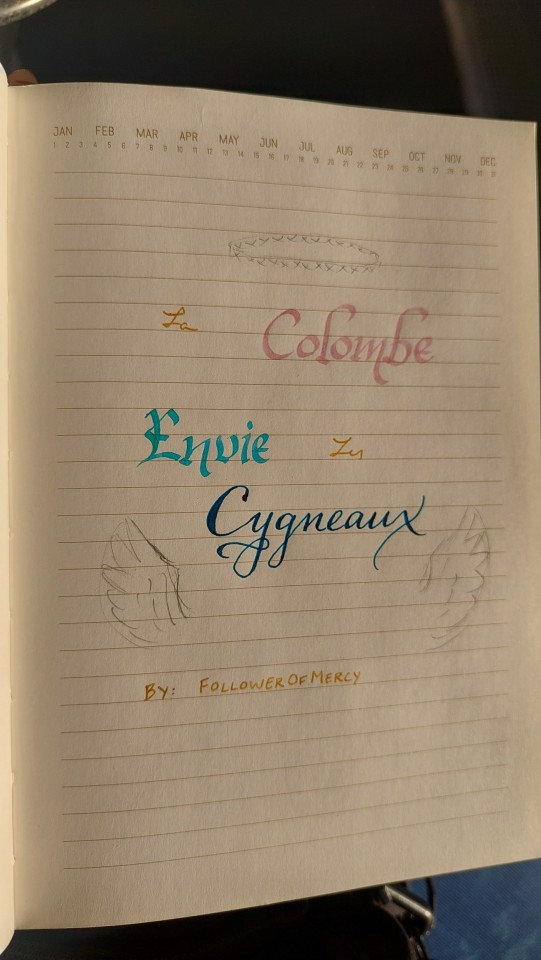 JAN FEB MAR APR MAY JUN JUL AUG SEP OCT NOV DEC
1 2 3 4 5 6 7 8 9 10 11 12 13 14 15 16 17 18 19 20 21 22 23 24 25 26 27 28 29 30 31
La Colombe
Envie Les
Cygneaux
BY: FOLLOWEROFMERCY